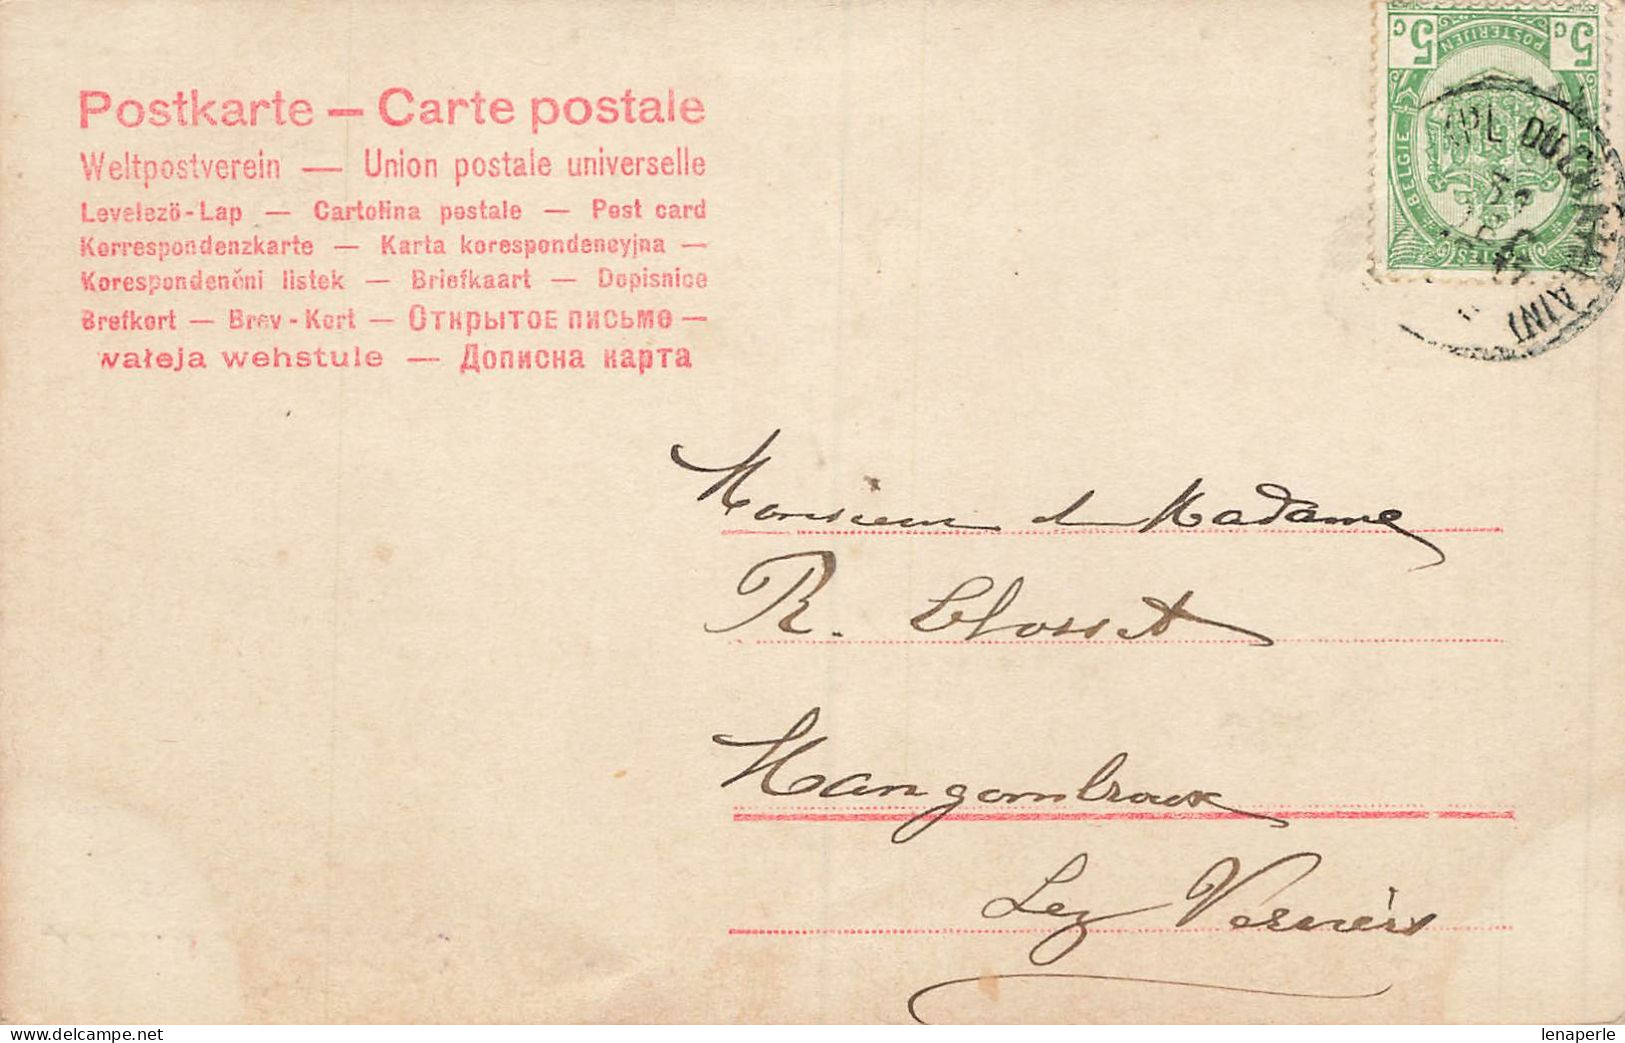 Postkarte – Carte postale
Weltpostverein — Union postale universelle
Levelező-Lap — Cartolina postale — Post card
Korrespondenzkarte — Karta korespondencyjna —
Korespondenční listek — Briefkaart — Dopisnice
Brefkort — Brev-Kort — Открытое письмо —
wałeja wehstule — Дописна карта
5 c
5 c
POSTERIJEN
BELGIE
Monsieur et Madame
R. Closset
Mangombroux
Lez Verviers
lenaperle